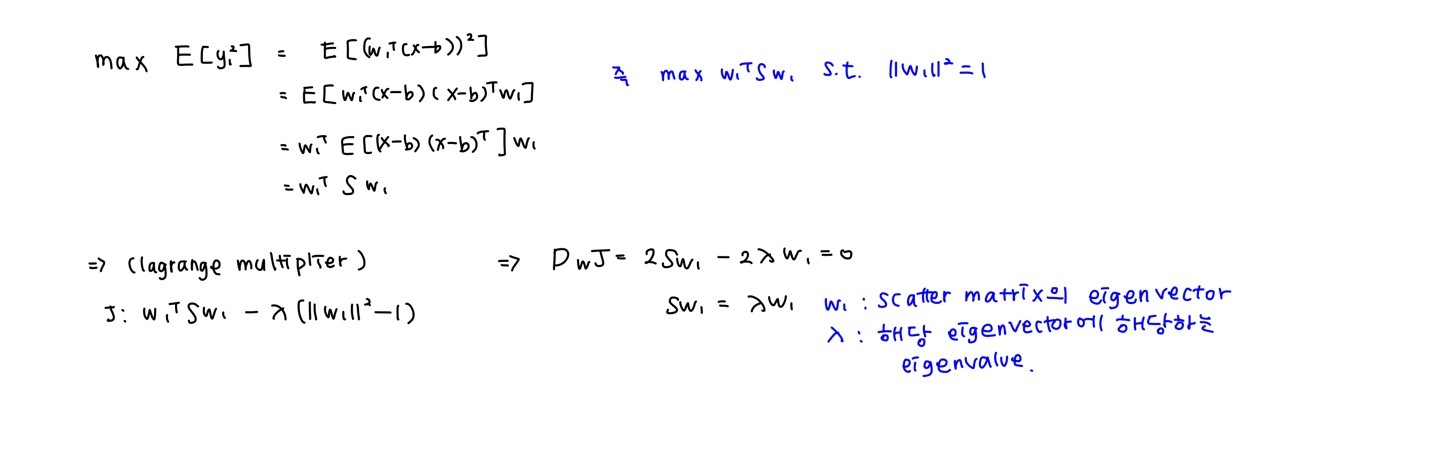 max E[y₁²] = E[(w₁ᵀ(x-b))²]
= E[w₁ᵀ(x-b)(x-b)ᵀw₁]
= w₁ᵀ E[(x-b)(x-b)ᵀ]w₁
= w₁ᵀ S w₁
즉 max w₁ᵀSw₁ s.t. ||w₁||² = 1
=> (lagrange multiplier)
J: w₁ᵀSw₁ - λ(||w₁||²-1)
=> D_wJ = 2Sw₁ - 2λw₁ = 0
Sw₁ = λw₁ w₁ : scatter matrix의 eigenvector
λ : 해당 eigenvector에 해당하는
eigenvalue.